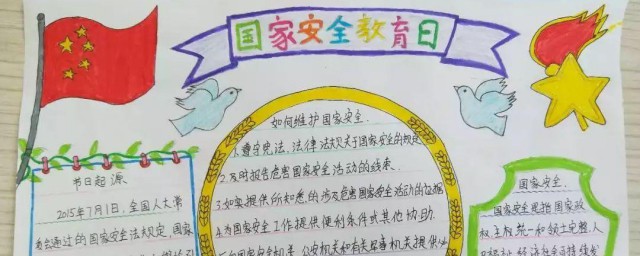 国家安全教育日
如何维护国家安全.
1.遵守宪法、法律法规关于国家安全的规定
2.及时报告危害国家安全活动的线索.
3.如实提供所知悉的涉及危害国家安全活动的证据
4.为国家安全工作提供便利条件或其他协助.
公安机关和有关军事机关提供必
节日起源
2015年7月1日,全国人大常
委会通过的国家安全法规定,国家
国家安全.
国家安全是指国家政
权、主权、统一和领土完整、人